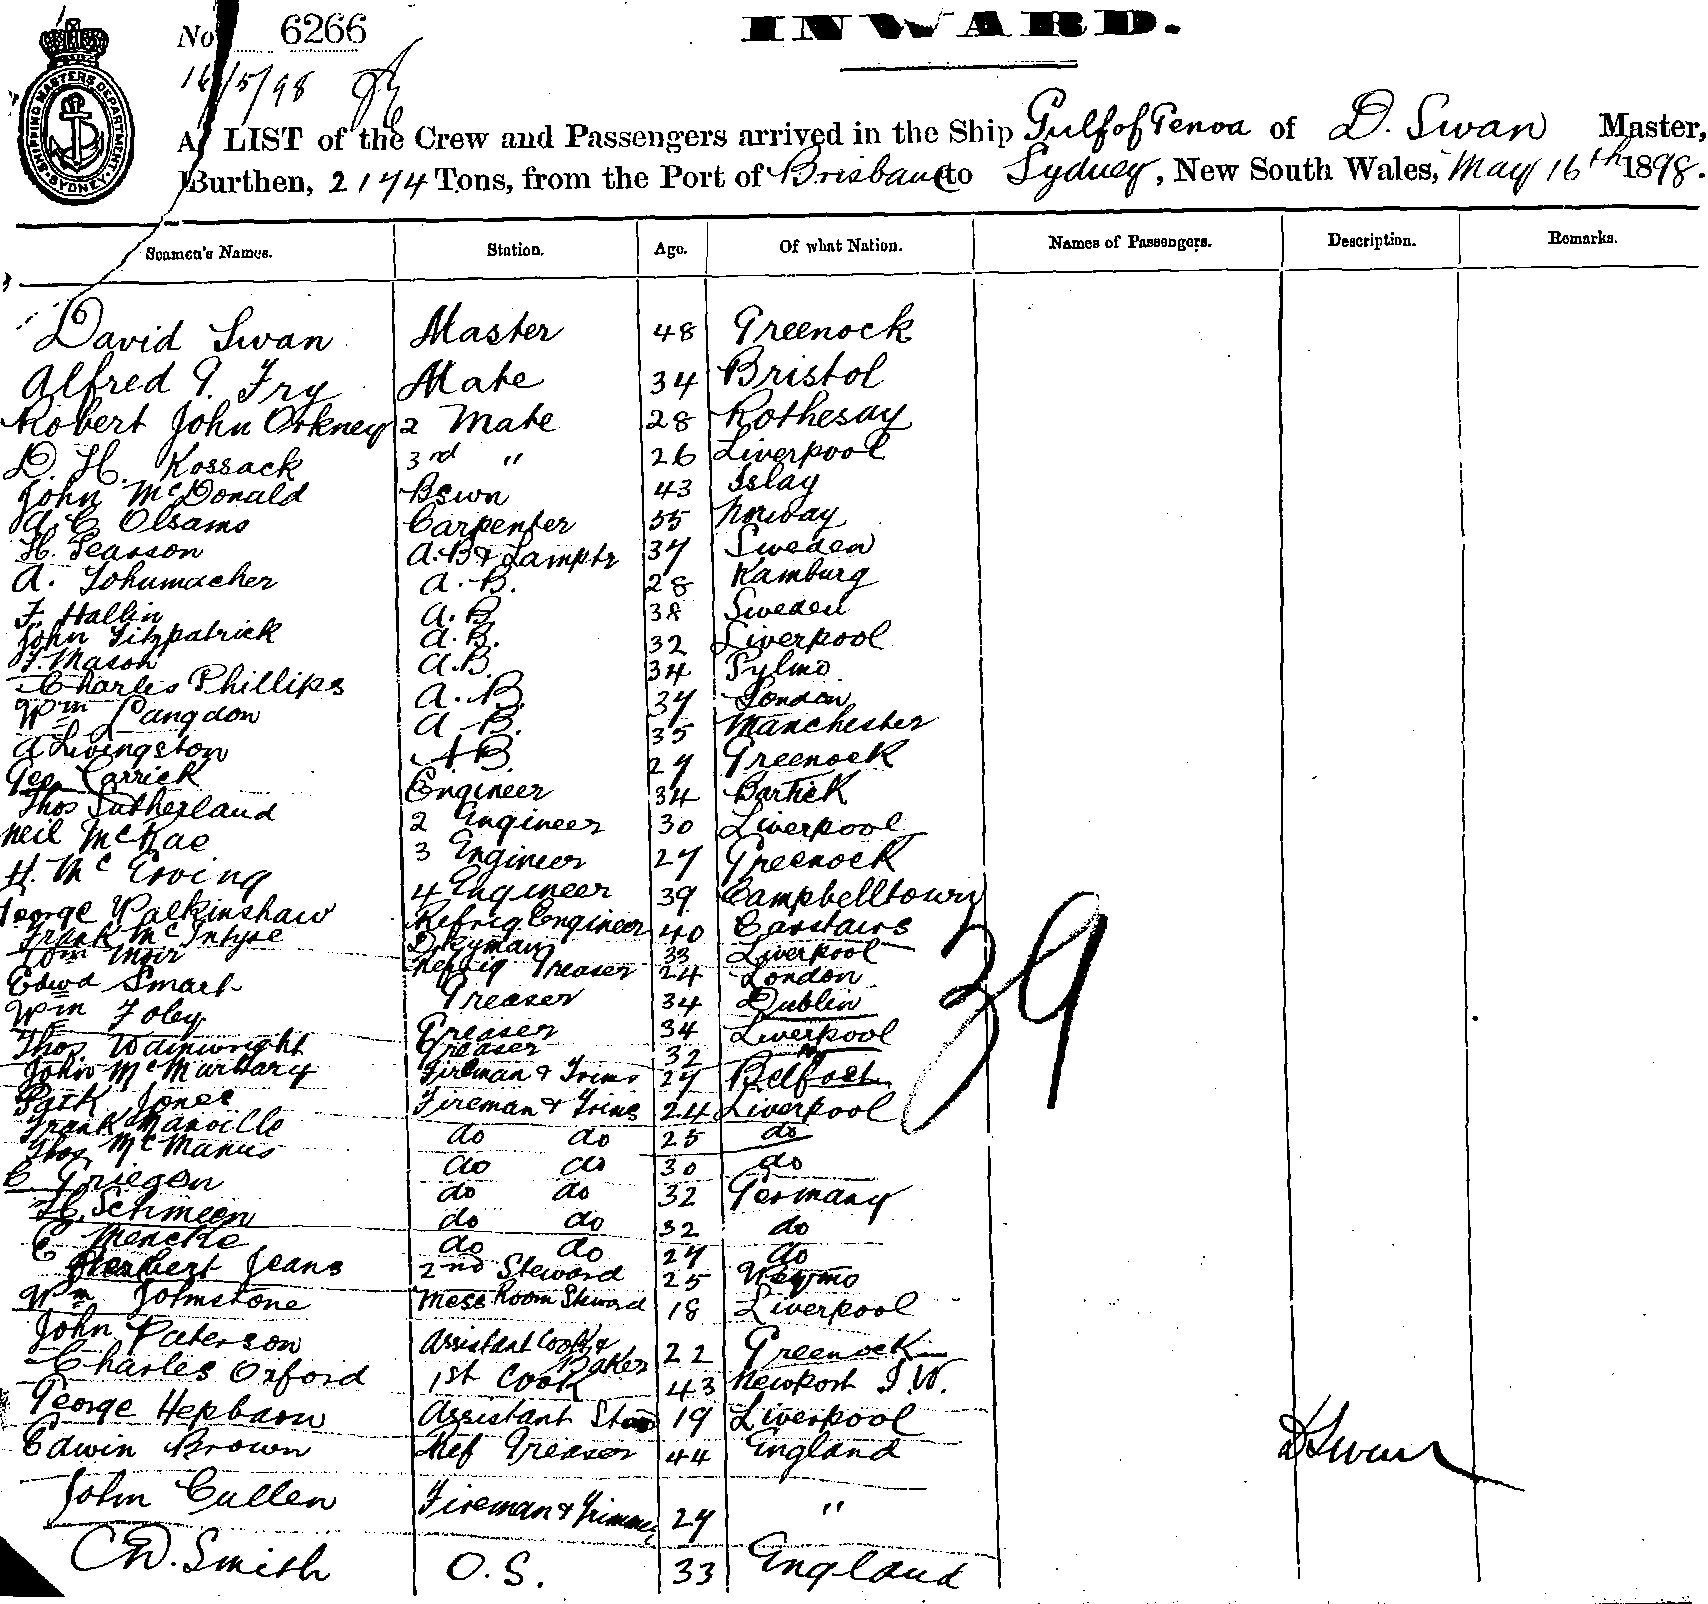 INWARD.
No 6266
16/5/98
SHIPPING MASTERS DEPARTMENT SYDNEY
A LIST of the Crew and Passengers arrived in the Ship Gulf of Genoa of D. Swan Master,
Burthen, 2174 Tons, from the Port of Brisbane to Sydney, New South Wales, May 16th 1898.
Seamen's Names. Station. Age. Of what Nation. Names of Passengers. Description. Remarks.
David Swan Master 48 Greenock
Alfred G. Fry Mate 34 Bristol
Robert John Orkney 2 Mate 28 Rothesay
D. H. Kossack 3rd " 26 Liverpool
John McDonald Bswn 43 Islay
A. C. Olsams Carpenter 55 Norway
H. Pearson A.B & Lamptr 37 Sweden
A. Schumacher A.B. 28 Hamburg
F. Hallin A.B. 38 Sweden
John Fitzpatrick A.B. 32 Liverpool
F. Mason A.B. 34
Charles Phillips A.B. 37 London
Wm Langdon A B. 35 Manchester
A Livingston A B. 27 Greenock
Geo Carrick Engineer 34 Partick
Thos Sutherland 2 Engineer 30 Liverpool
Neil McRae 3 Engineer 27 Greenock
H. Mc Erving 4 Engineer 39 Campbelltown
George Walkinshaw Refrig Engineer 40 Carstairs
Frank McIntyre Dkyman 33 Liverpool
Wm Moir Refrig Greaser 24 London
Edwd Smart Greaser 34 Dublin
Wm Foley Greaser 34 Liverpool
Thos Wainwright Greaser 32 "
John McMurtary Fireman & Trims 27 Belfast
Patk Jones Fireman & Trims 24 Liverpool
Frank Manville do do 25 do
Thos McManus do do 30 do
C Griegen do do 32 Germany
H. Schmeen do do 32 do
C Mencke do do 27 do
Herbert Jeans 2nd Steward 25
Wm Johnstone Mess Room Steward 18 Liverpool
John Paterson Assistant Cook & Baker 22 Greenock
Charles Oxford 1st Cook 43 Newport I.W.
George Hepbarn Assistant Stwd 19 Liverpool
Edwin Brown Ref Greaser 44 England
John Cullen Fireman & Trimmer 27 "
C W. Smith O.S. 33 England
39
D Swan